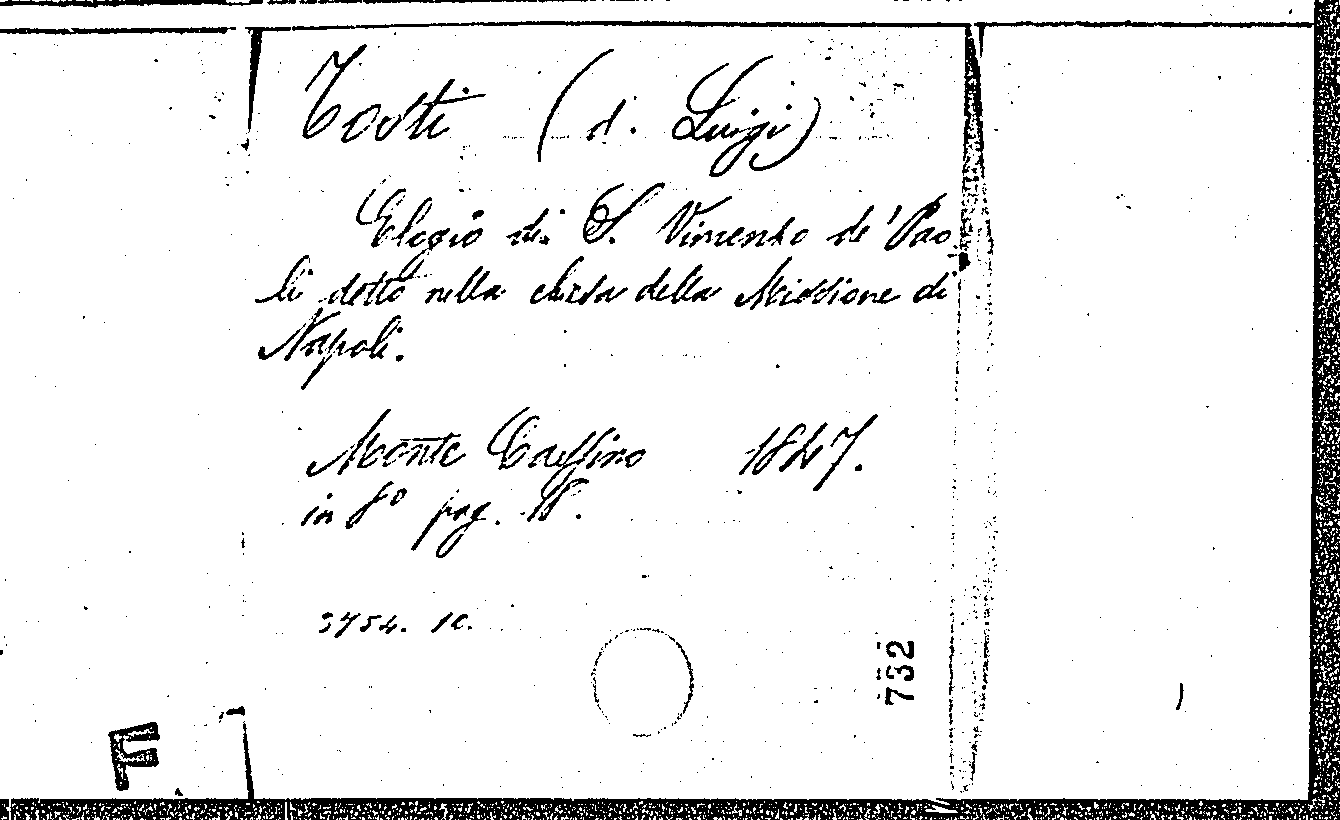 Tosti (d. Luigi)
Elogio di S. Vincenzo de' Pao
li detto nella chiesa della Missione di
Napoli.
Monte Cassino 1847.
in 8° pag. 18.
3754. 10.
732
F